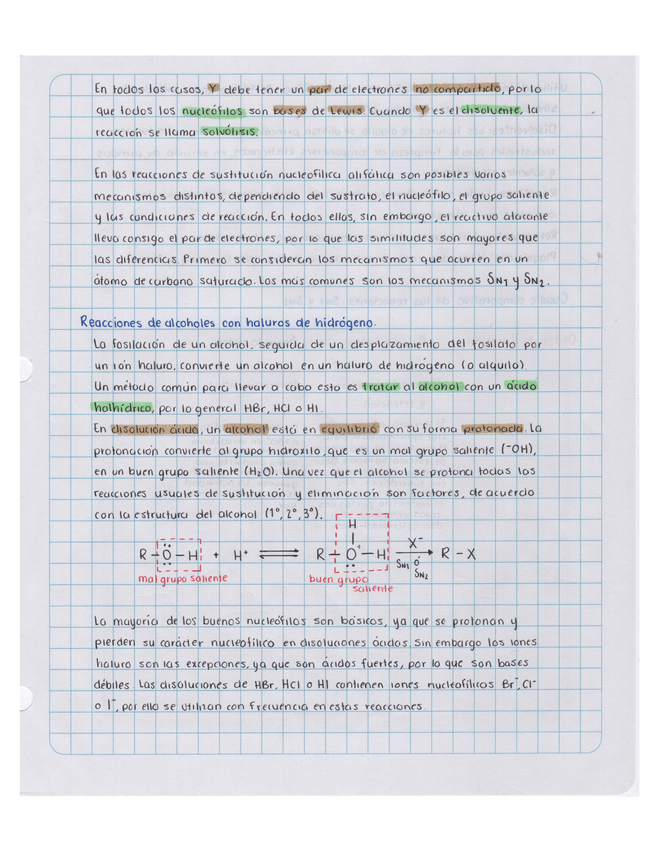 En todos los casos, Y debe tener un par de electrones no compartido, por lo
que todos los nucleófilos son bases de Lewis. Cuando Y es el disolvente, la
reacción se llama solvólisis.
En las reacciones de sustitución nucleofílica alifática son posibles varios
mecanismos distintos, dependiendo del sustrato, el nucleófilo, el grupo saliente
y las condiciones de reacción. En todos ellos, sin embargo, el reactivo atacante
lleva consigo el par de electrones, por lo que las similitudes son mayores que
las diferencias. Primero se consideran los mecanismos que ocurren en un
átomo de carbono saturado. Los más comunes son los mecanismos SN1 y SN2.
Reacciones de alcoholes con haluros de hidrógeno.
La fosilación de un alcohol, seguida de un desplazamiento del fosilato por
un ión haluro, convierte un alcohol en un haluro de hidrógeno (o alquilo)
Un método común para llevar a cabo esto es tratar al alcohol con un ácido
holhídrico, por lo general HBr, HCl o HI.
En disolución ácida, un alcohol está en equilibrio con su forma protonada. La
protonación convierte al grupo hidroxilo, que es un mal grupo saliente (⁻OH),
en un buen grupo saliente (H₂O). Una vez que el alcohol se protona todas las
reacciones usuales de sustitución y eliminación son factores, de acuerdo
con la estructura del alcohol (1°, 2°, 3°).
H
R-O-H + H⁺ ⇌ R-O⁺-H X⁻ → R-X
SN1 ó SN2
mal grupo saliente
buen grupo saliente
La mayoría de los buenos nucleófilos son básicos, ya que se protonan y
pierden su carácter nucleofílico en disoluciones ácidas. Sin embargo los iones
haluro son las excepciones, ya que son ácidos fuertes, por lo que son bases
débiles. Las disoluciones de HBr, HCl o HI contienen iones nucleofílicos Br⁻, Cl⁻
o I⁻, por ello se utilizan con frecuencia en estas reacciones.